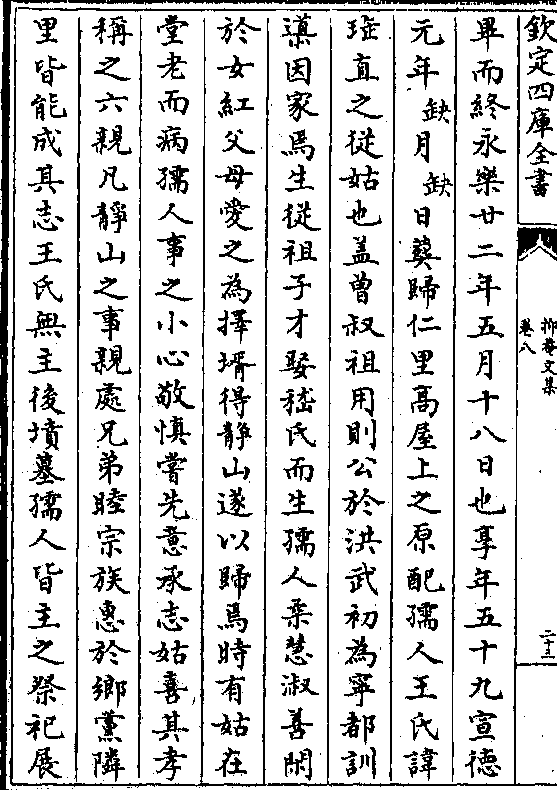 欽定四庫全書
抑菴文集
卷八
二十三
畢而終永樂廿二年五月十八日也享年五十九宣德
元年缺月缺日葬歸仁里髙屋上之原配孺人王氏諱
琁直之從姑也盖曽叔祖用則公於洪武初為寧都訓
導因家焉生從祖子才娶嵇氏而生孺人柔慧淑善閑
於女紅父母愛之為擇壻得靜山遂以歸焉時有姑在
堂老而病孺人事之小心敬慎嘗先意承志姑喜其孝
稱之六親凡靜山之事親處兄弟睦宗族惠於鄉黨隣
里皆能成其志王氏無主後墳墓孺人皆主之祭祀展